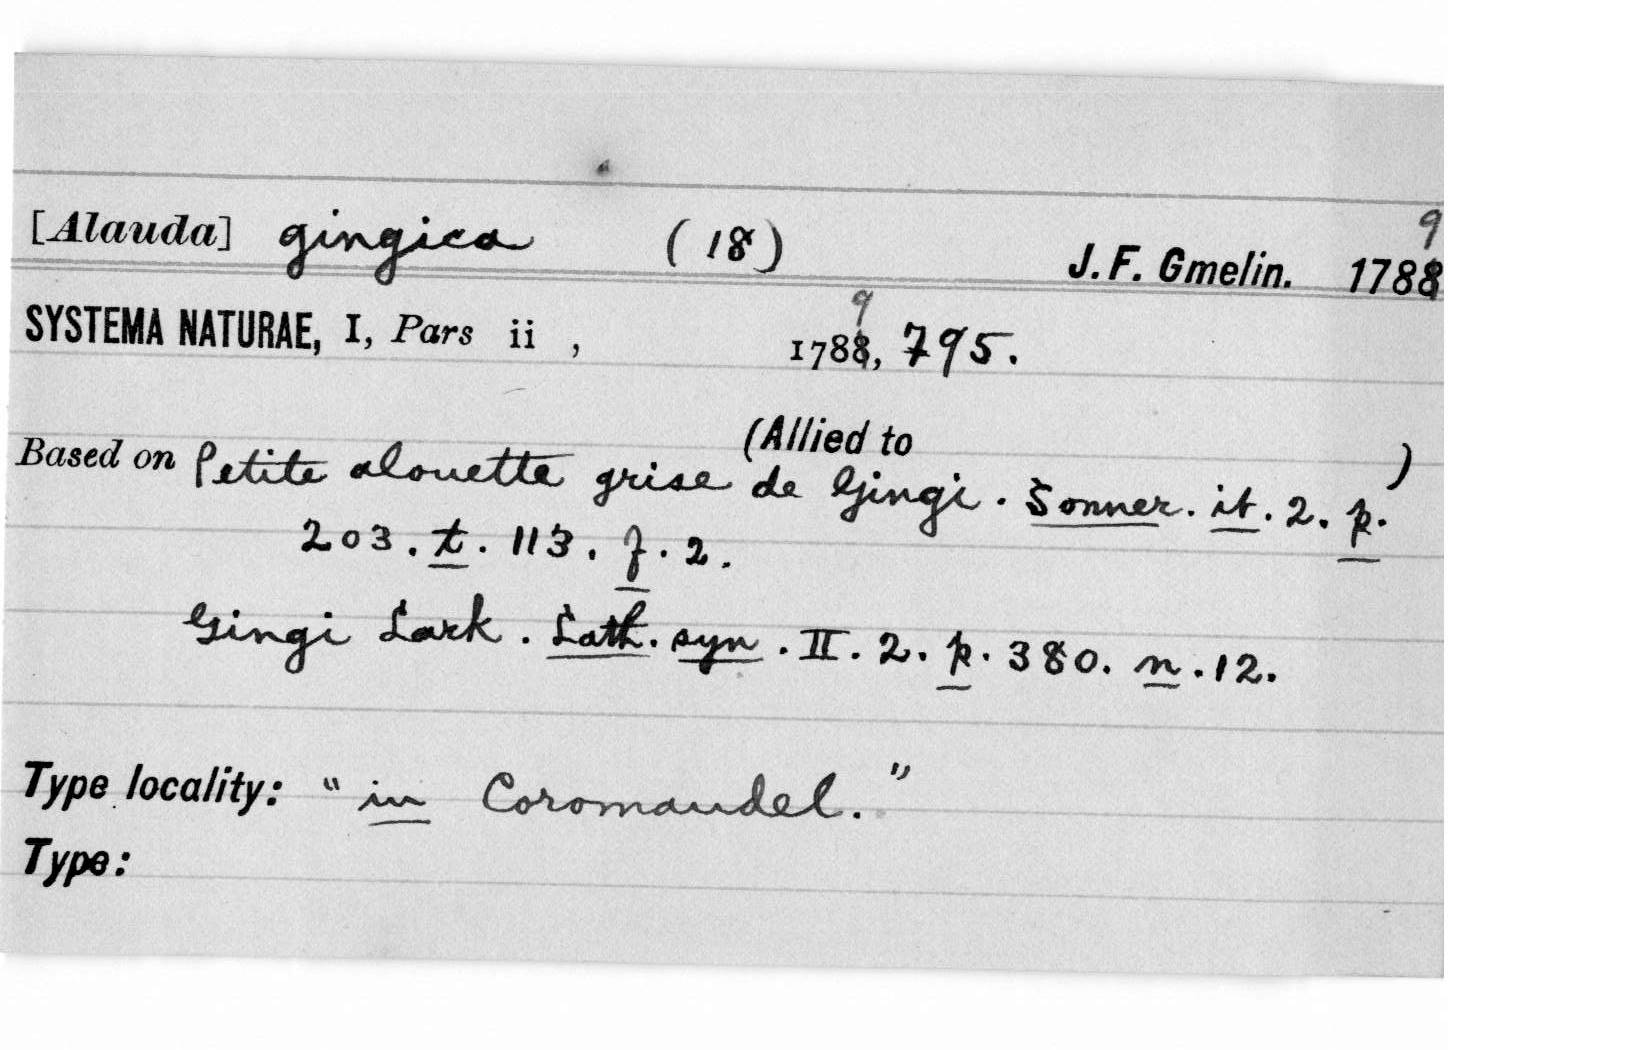 [Alauda] gingica (18) J. F. Gmelin. 1788 9
SYSTEMA NATURAE, I, Pars ii , 1788 9, 795.
(Allied to )
Based on Petite alouette grise de Gingi. Sonner. it. 2. p.
203. t. 113. f. 2.
Gingi Lark. Lath. syn. II. 2. p. 380. n. 12.
Type locality: "in Coromandel."
Type: